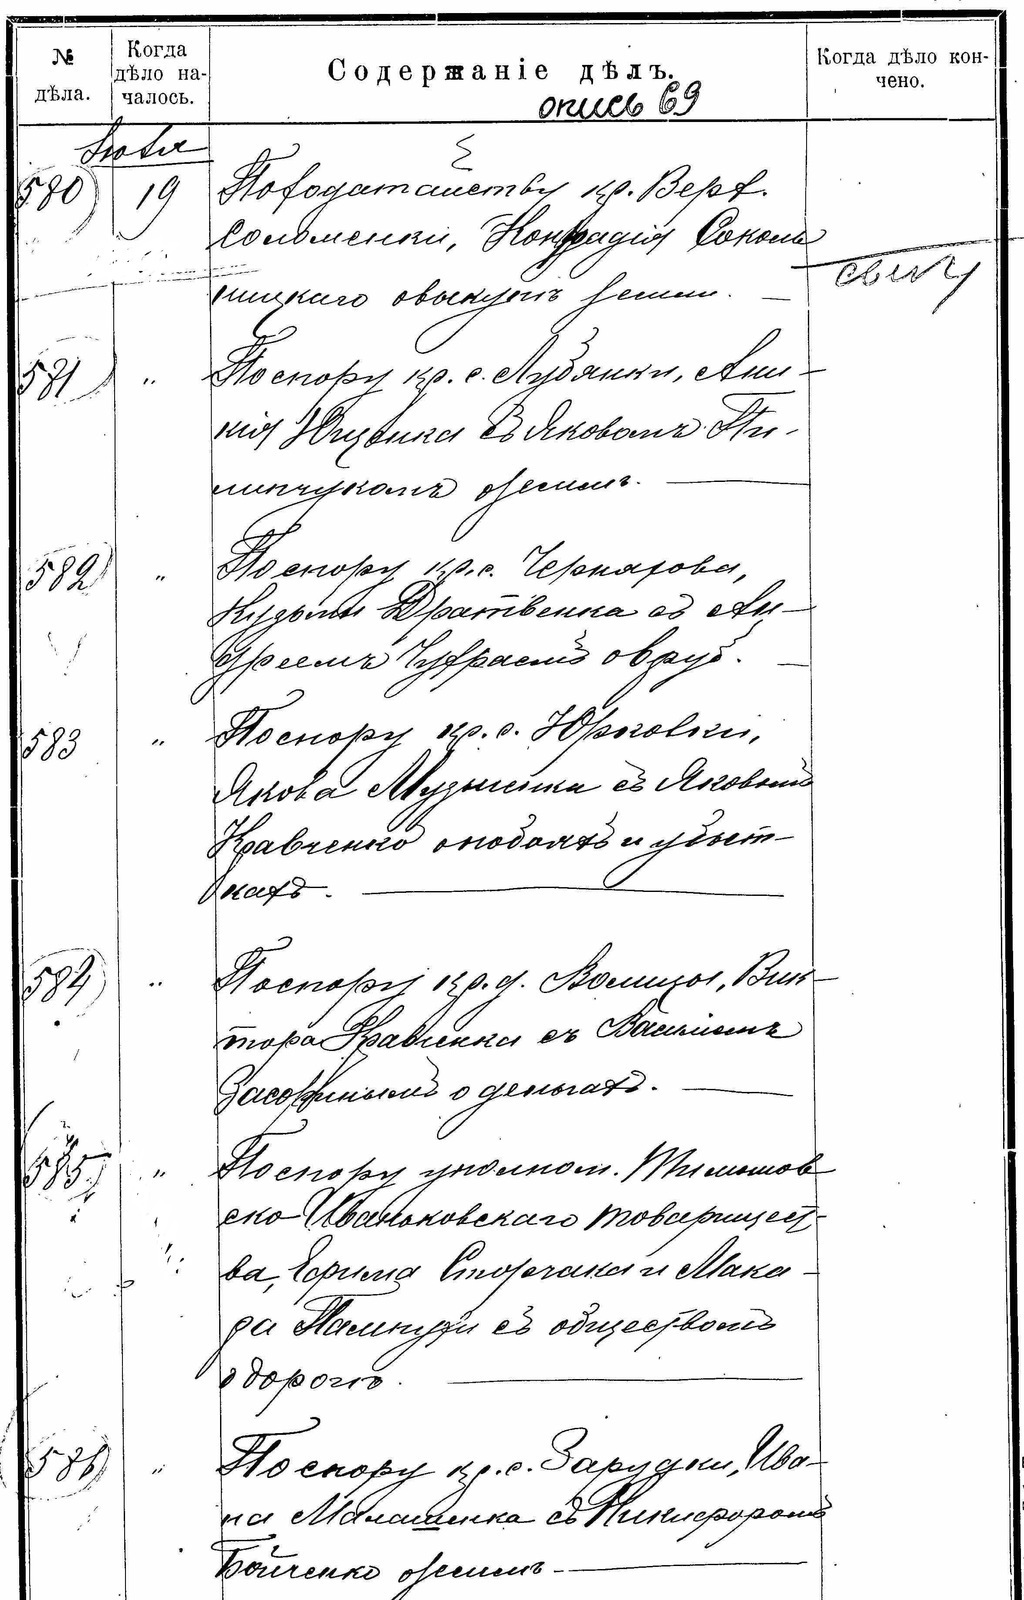 № дѣла.
Когда дѣло на-
чалось.
Содержаніе дѣлъ.
Когда дѣло кон-
чено.
опись 69
580 19 По ходатайству кр. Верх.
Соломенки, Кондрадія Соколь
ницкаго о выкупѣ земли.
581 " По спору кр. с. Лубянки, Ани-
кія Ющенка съ Яковомъ Пи-
липчукомъ о землѣ.
582 " По спору кр. с. Черняхова,
Кузьмы Дратвенка съ Ан-
дреемъ
583 " По спору кр. с. Юрковки,
Якова Музыченка съ Яковомъ
Кравченко о побояхъ и убыт-
кахъ.
584 " По спору кр. д. Волицы, Вик-
тора Кравченка съ
о деньгахъ.
585 " По спору уполном.
ско-Иваньковскаго товарищест-
ва, Ефима Сторчака и Мака-
ра съ обществомъ
о дорогѣ.
586 " По спору кр. с. Зарудки, Ива-
на Малашенка съ Никифоромъ
Бойченко о землѣ.